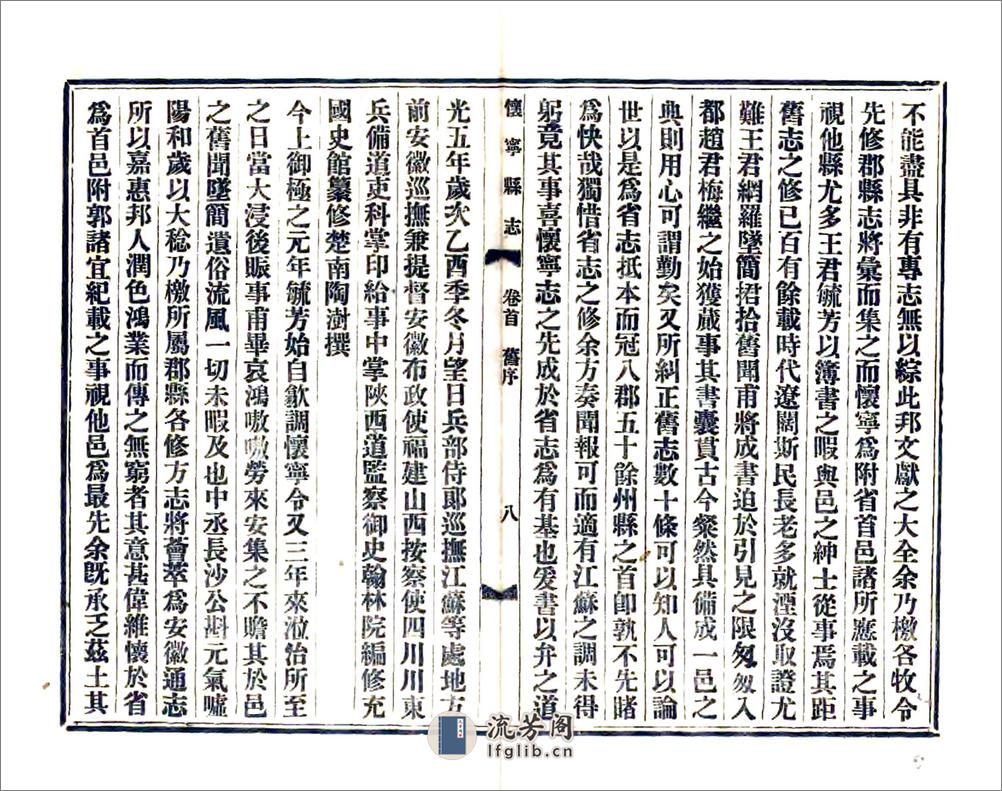 不能盡具非有專志無以綜此邦文獻之大全余乃檄各牧令
先修郡縣志將彙而集之而懷寧爲附省首邑諸所應載之事
視他縣尤多王君毓芳以簿書之暇與邑之紳士從事焉其距
舊志之修已百有餘載時代遼闊斯民長老多就湮沒取證尤
難王君網羅墜簡捃拾舊聞甫將成書迫於引見之限匆匆入
都趙君梅繼之始獲蕆事其書囊貫古今燦然具備成一邑之
典則用心可謂勤矣又所糾正舊志數十條可以知人可以論
世以是爲省志抵本而冠八郡五十餘州縣之首卽孰不先睹
爲快哉獨惜省志之修余方奏聞報可而適有江蘇之調未得
躬竟其事喜懷寧志之先成於省志爲有基也爰書以弁之道
懷寧縣志 卷首 舊序 八
光五年歲次乙酉季冬月望日兵部侍郞巡撫江蘇等處地方
前安徽巡撫兼提督安徽布政使福建山西按察使四川川東
兵備道吏科掌印給事中掌陝西道監察御史翰林院編修充
國史館纂修楚南陶澍撰
今上御極之元年毓芳始自歙調懷寧令又三年來涖治所至
之日當大浸後賑事甫畢哀鴻嗷嗷勞來安集之不贍其於邑
之舊聞墜簡遺俗流風一切未暇及也中丞長沙公斟元氣噓
陽和歲以大稔乃檄所屬郡縣各修方志將薈萃爲安徽通志
所以嘉惠邦人潤色鴻業而傳之無窮者其意甚偉維懷於省
爲首邑附郭諸宜紀載之事視他邑爲最先余旣承乏茲土其
流芳閣
lfglib.cn